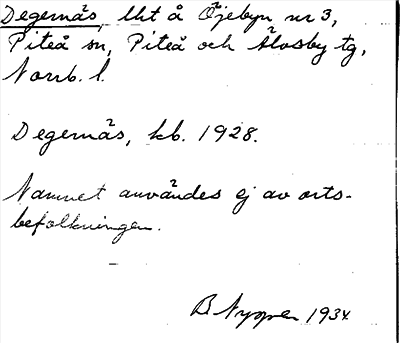 Degernäs, lht å Öjebyn nr 3,
Piteå sn, Piteå och Älvsby tg,
Norrb. l.
Degernäs, kb. 1928.
Namnet användes ej av orts-
befolkningen.
B 1934